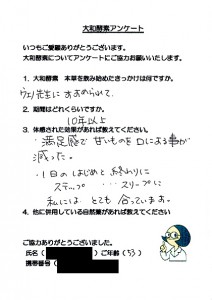 大和酵素アンケート
いつもご愛顧ありがとうございます。
大和酵素についてアンケートにご協力お願いいたします。
1．大和酵素　本草を飲み始めたきっかけは何ですか。
先生にすすめられて。
2．期間はどれくらいですか。
10年以上
3．体感された効果があれば教えてください。
・満足感で甘いものを口による事が
減った。
・1日のはじめと終わりに
ステップ‥‥スリープに
私には とても 合っています。
4．他に併用している自然薬があれば教えてください
ご協力ありがとうございました。
氏名（　　　　　）ご年齢（53）
携帯番号（　　　　　）